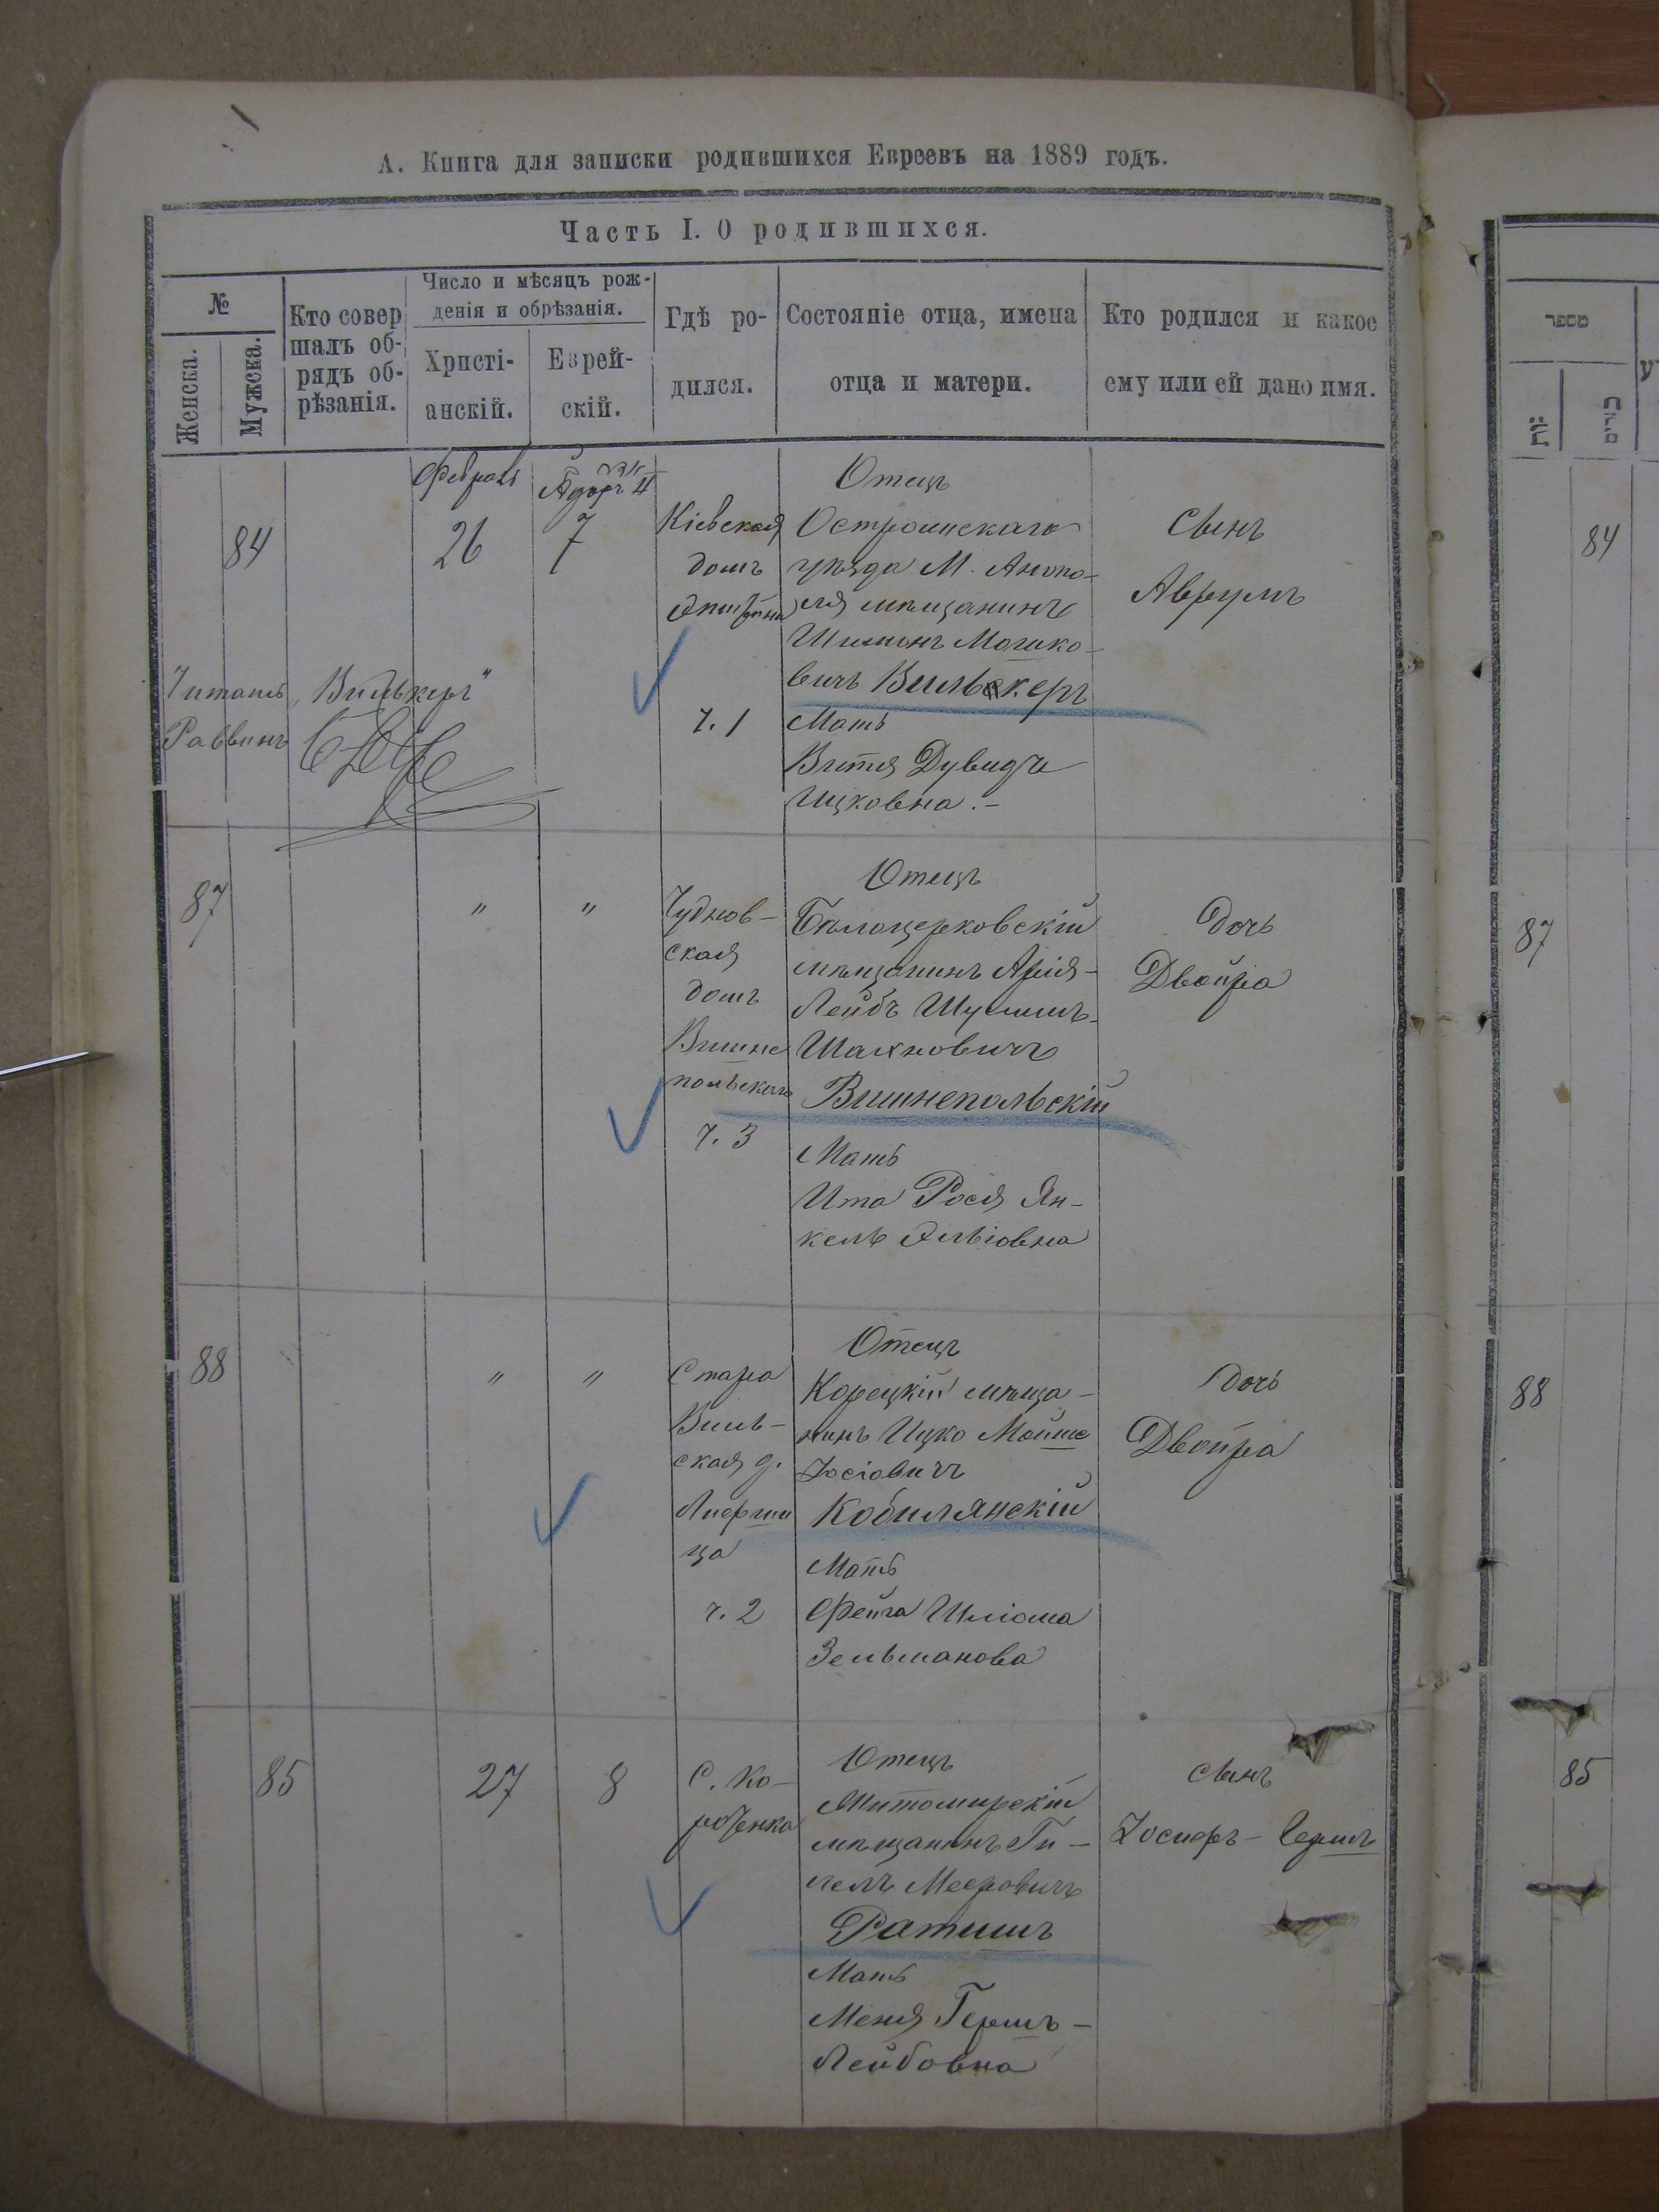 А. Книга для записки родившихся Евреевъ на 1889 годъ.
Часть I. О родившихся.
№
Женска.
Мужска.
Кто совер
шалъ об-
рядъ об-
рѣзанія.
Число и мѣсяцъ рож-
денія и обрѣзанія.
Христі-
анскій.
Еврей-
скій.
Гдѣ ро-
дился.
Состояніе отца, имена
отца и матери.
Кто родился и какое
ему или ей дано имя.
84
Февраль
26
Адоръ
7
Кіевская
домъ
ч. 1
Отецъ
Остроинскаго
уѣзда М. Анопо-
ля мѣщанинъ
Шимонъ Мошко-
вичъ Вилькеръ
Мать
Витя Дувидъ
Ицковна.-
Сынъ
Аврумъ
Читать „Вилькеръ"
Раввинъ
87
"
"
Чуднов-
ская
домъ
Вишне
польскаго
ч. 3
Отецъ
Бѣлоцерковскій
мѣщанинъ Арія-
Лейбъ Шулимъ-
Шахновичъ
Вишнепольскій
Мать
Ита Рося Ян-
кель Эліовна
Дочь
Двойра
88
"
"
Старо
Виль-
ская д.
ца
ч. 2
Отецъ
Корецкій мѣща-
нинъ Ицко Мойше
Іосіовичъ
Кобилянскій
Мать
Фейга Шліома
Зельманова
Дочь
Двойра
85
27
8
С. Ко-
Отецъ
Житомирскій
мѣщанинъ Ги-
лель Мееровичъ
Ратишъ
Мать
Меня Гершъ-
Лейбовна
Сынъ
Іосифъ-Гершъ
מספר
84
87
88
85